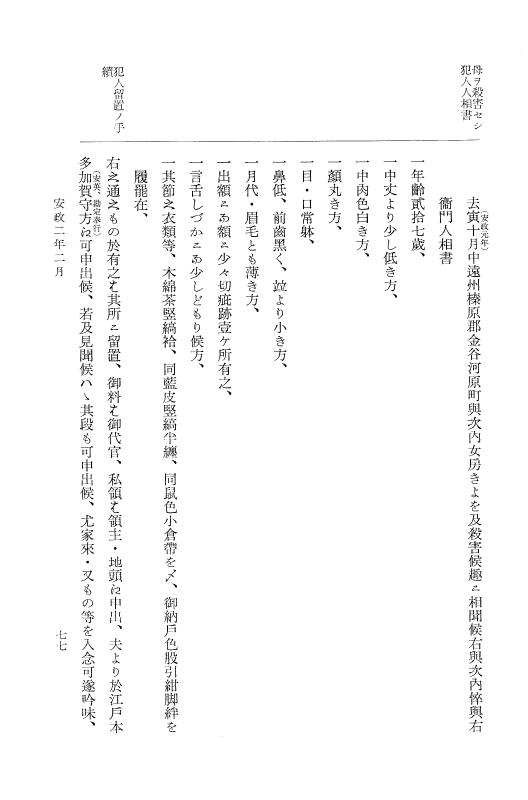 母ヲ殺害セシ
犯人人相書
去寅十月中遠州榛原郡金谷河原町與次内女房きよを及殺害候趣ニ相聞候右與次内忰與右
(安政元年)
衞門人相書
一年齡貳拾七歳、
一中丈より少し低き方、
一中肉色白き方、
一顏丸き方、
一目・口常躰、
一鼻低、前齒黑く、竝より小き方、
一月代・眉毛とも薄き方、
一出額ニあ額ニ少々切疵跡壹ケ所有之、
一言舌しづかニあ少しどもり候方、
一其節之衣類等、木綿茶竪縞袷、同藍皮竪縞半纏、同鼠色小倉帶を〆、御納戸色股引紺脚絆を
履罷在、
犯人留置ノ手
續
右之通之もの於有之は其所ニ留置、御料は御代官、私領は領主・地頭に申出、夫より於江戸本
多加賀守方に可申出候、若及見聞候ハヽ其段も可申出候、尤家來・又もの等を入念可遂吟味、
(安英、勘定奉行)
安政二年二月
七七